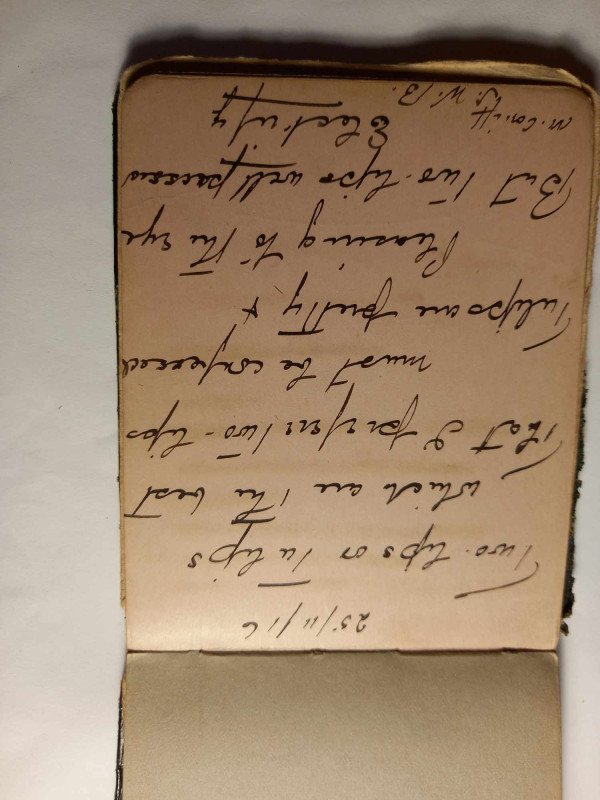 25/11/16
Two-lips or Tulips
which are the best
That I prefere two-lips
must be confessed
Tulips are pretty &
Pleasing to the eye
But two-lips well pressed
Elect'ufy
W. B.